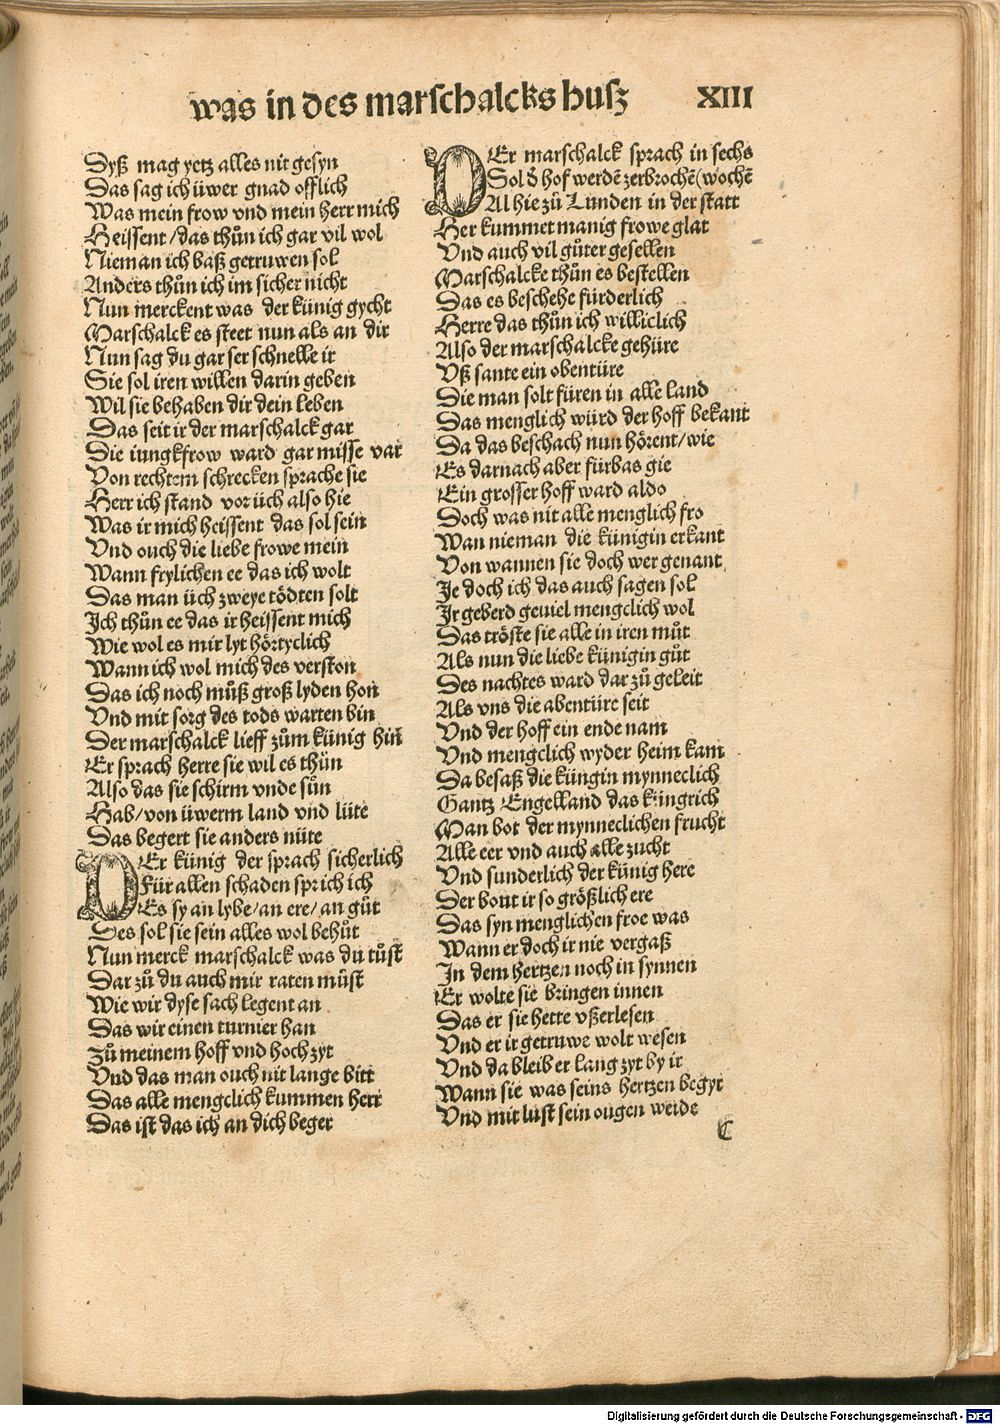 was in des marschalcks husz XIII
Dyß mag yetz alles nit gesyn
Das sag ich üwer gnad offlich
Was mein frow vnd mein herr mich
Heissent/das thůn ich gar vil wol
Nieman ich baß getruwen sol
Anders thůn ich im sicher nicht
Nun merckent was der künig gycht
Marschalck es steet nun als an dir
Nun sag du gar ser schnelle ir
Sie sol iren willen darin geben
Wil sie behaben dir dein leben
Das seit ir der marschalck gar
Die iungkfrow ward gar misse var
Von rechtem schrecken sprache sie
Herr ich stand vor üch also hie
Was ir mich heissent das sol sein
Vnd ouch die liebe frowe mein
Wann frylichen ee das ich wolt
Das man üch zweye tödten solt
Ich thůn ee das ir heissent mich
Wie wol es mir lyt hörtyclich
Wann ich wol mich des verston
Das ich noch můß groß lyden hon
Vnd mit sorg des tods warten bin
Der marschalck lieff zům künig hin
Er sprach herre sie wil es thůn
Also das sie schirm vnde sůn
Hab/von üwerm land vnd lüte
Das begert sie anders nüte
DEr künig der sprach sicherlich
Für allen schaden sprich ich
Es sy an lybe/an ere/an gůt
Des sol sie sein alles wol behůt
Nun merck marschalck was du tůst
Dar zů du auch mir raten můst
Wie wir dyse sach legent an
Das wir einen turnier han
Zů meinem hoff vnd hochzyt
Vnd das man ouch nit lange bitt
Das alle mengclich kummen herr
Das ist das ich an dich beger
DEr marschalck sprach in sechs
Sol d̛ hof werdē zerbrochē(wochē
Al hie zů Lunden in der statt
Her kummet manig frowe glat
Vnd auch vil gůter gesellen
Marschalcke thůn es bestellen
Das es beschehe fürderlich
Herre das thůn ich williclich
Also der marschalcke gehüre
Vß sante ein obentüre
Die man solt füren in alle land
Das menglich würd der hoff bekant
Da das beschach nun hörent/wie
Es darnach aber fürbas gie
Ein grosser hoff ward aldo
Doch was nit alle menglich fro
Wan nieman die künigin erkant
Von wannen sie doch wer genant
Je doch ich das auch sagen sol
Ir geberd geuiel mengclich wol
Das tröste sie alle in iren můt
Als nun die liebe künigin gůt
Des nachtes ward dar zů geleit
Als vns die abentüre seit
Vnd der hoff ein ende nam
Vnd mengclich wyder heim kam
Da besaß die küngin mynneclich
Gantz Engelland das küngrich
Man bot der mynneclichen frucht
Alle eer vnd auch alle zucht
Vnd sunderlich der künig here
Der bout ir so größlich ere
Das syn menglichen froe was
Wann er doch ir nie vergaß
In dem hertzen noch in synnen
Er wolte sie bringen innen
Das er sie hette vßerlesen
Vnd er ir getruwe wolt wesen
Vnd da bleib er lang zyt by ir
Wann sie was seins hertzen begyr
Vnd mit lust sein ougen weide
C
Digitalisierung gefördert durch die Deutsche Forschungsgemeinschaft - DFG